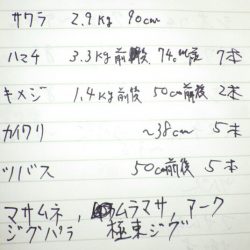 サワラ 2.9kg 90cm
ハマチ 3.3kg前後 74cm前後 7本
キメジ 1.4kg前後 50cm前後 2本
カイワリ ~38cm 5本
ツバス 50cm前後 5本
マサムネ, ムラマサ, アーク
ジグパラ 極東ジグ